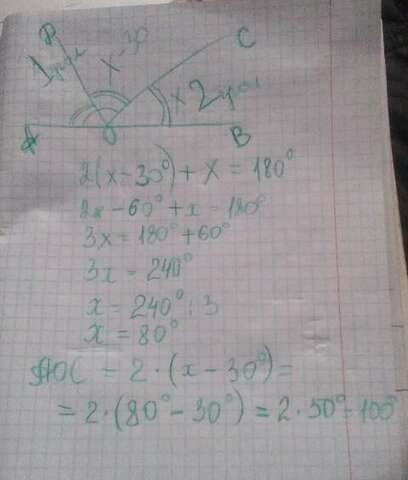 P
C
1 угол
x
x
2 угол
A
O
B
2(x-30°)+x=180°
2x-60°+x=180°
3x=180°+60°
3x=240°
x=240°:3
x=80°
AOC = 2·(x-30°)=
=2·(80°-30°)=2·50°=100°